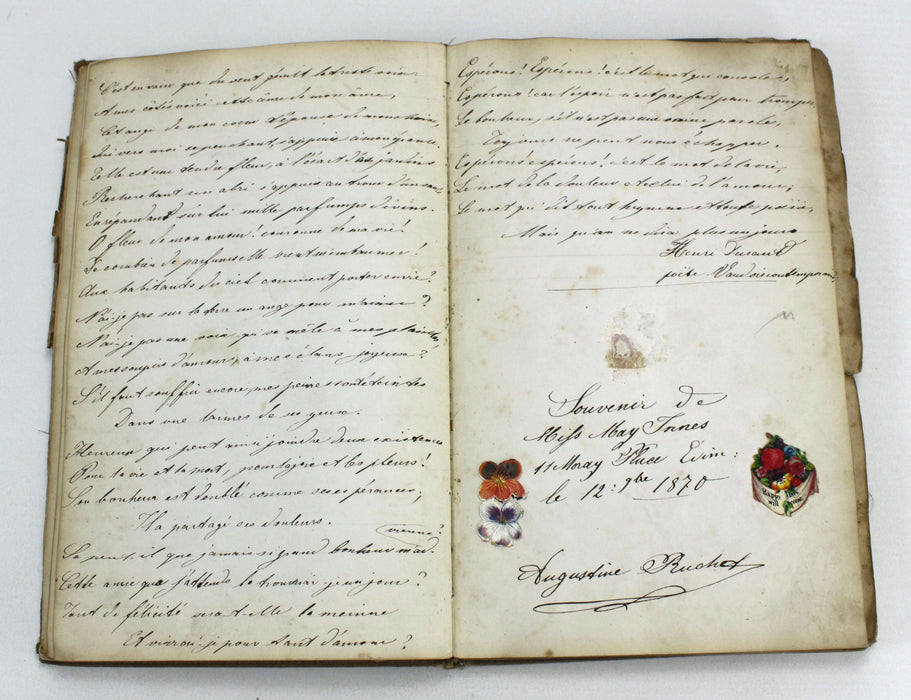 C'est en vain que du vent gémit la triste voix
A mes côtés voici cette âme de mon âme,
Cet ange de mon coeur
Qui vers moi se penchant, s'appuie à mon
Telle est une tendre fleur, à l'écart des jardins
Recherchant un abri s'appuie au tronc d'un
En répandant sur lui mille parfums divins.
O fleur de mon amour! couronne de ma vie!
De combien de parfums elle vient m'embaumer!
Aux habitants du ciel comment porter envie?
N'ai-je pas sur la terre un ange pour m'aimer?
N'ai-je pas une voix qui se mêle à mes plaintes,
A mes soupirs d'amour, à mes élans joyeux?
S'il faut souffrir encore, mes peines sont éteintes
Dans une larmes de ses yeux.
Heureux qui peut ainsi joindre deux existences
Pour la vie et la mort, pour la joie et les pleurs!
Son bonheur est doublé comme ses espérances,
Il a partagé ses douleurs.
vienne?
Se peut-il que jamais si grand bonheur m'ad.
Cette amie que j'attends la trouverai-je un jour?
Tant de félicité sera-t-elle la mienne
Et vivrai-je pour tant d'amour?
Espérons! Espérons! c'est le mot qui console,
Espérons! car l'espoir n'est pas fait pour tromper,
Le bonheur, s'il n'est pas une vaine parole,
Toujours ne peut nous échapper.
Espérons espérons! c'est le mot de la vie,
Le mot de la douleur et celui de l'amour,
Le mot qui dit tout hymne et toute poésie,
Mais qu'on ne dira plus un jour
Henri Durand
poète Vaudois contemporain
Souvenir de
Miss May Innes
11 Moray Place Edim:
le 12: 9bre 1870
Augustine Ruchet